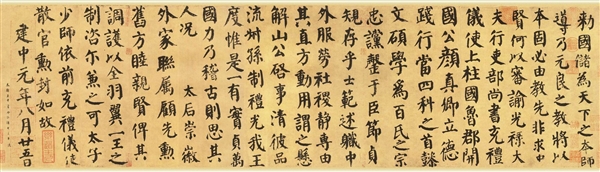 勅國儲為天下之本師
導乃元良之教將以
本固必由教先非求中
賢何以審諭光祿大
夫行吏部尚書充禮
儀使上柱國魯郡開
國公顏真卿立德
踐行當四科之首懿
文碩學為百氏之宗
忠讜罄于臣節貞
規存乎士範述職中
外服勞社稷靜專由
其直方動用謂之懸
解山公啓事清彼品
流叔孫制禮光我王
度惟是一有實貞萬
國力乃稽古則思其
人况 太后崇徽
外家聯属顧先勳
舊方睦親賢俾其
調護以全羽翼一王之
制咨尒兼之可太子
少師依前充禮儀使
散官勳封如故
建中元年八月廿五日